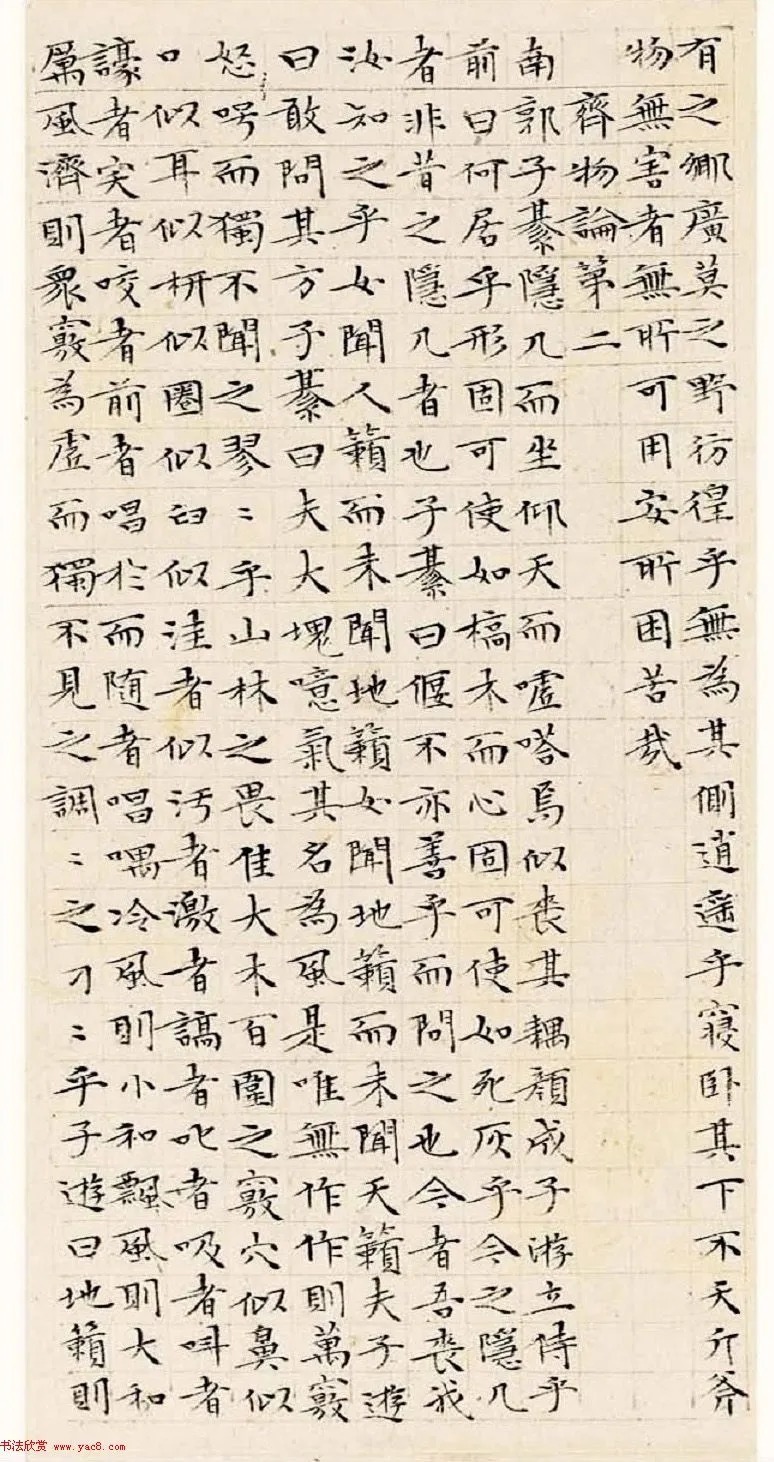 有之鄉廣莫之野彷徨乎無為其側逍遥乎寢卧其下不夭斤斧
物無害者無所可用安所困苦哉
齊物論第二
南郭子綦隱几而坐仰天而噓嗒焉似喪其耦顏成子游立侍乎
前曰何居乎形固可使如槁木而心固可使如死灰乎今之隱几
者非昔之隱几者也子綦曰偃不亦善乎而問之也今者吾喪我
汝知之乎女聞人籟而未聞地籟女聞地籟而未聞天籟夫子遊
曰敢問其方子綦曰夫大塊噫氣其名為風是唯無作作則萬竅
怒呺而獨不聞之翏〻乎山林之畏隹大木百圍之竅穴似鼻似
口似耳似枅似圈似臼似洼者似污者激者謞者叱者吸者叫者
譹者宎者咬者前者唱於而随者唱喁冷風則小和飄風則大和
厲風濟則衆竅為虛而獨不見之調〻之刁〻乎子遊曰地籟則
书法欣赏 www.yac8.com